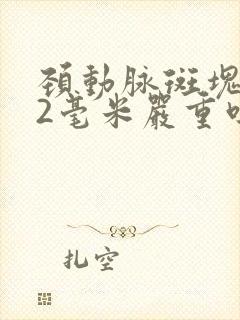 頚動脉斑塊
2毫米嚴重
扎空